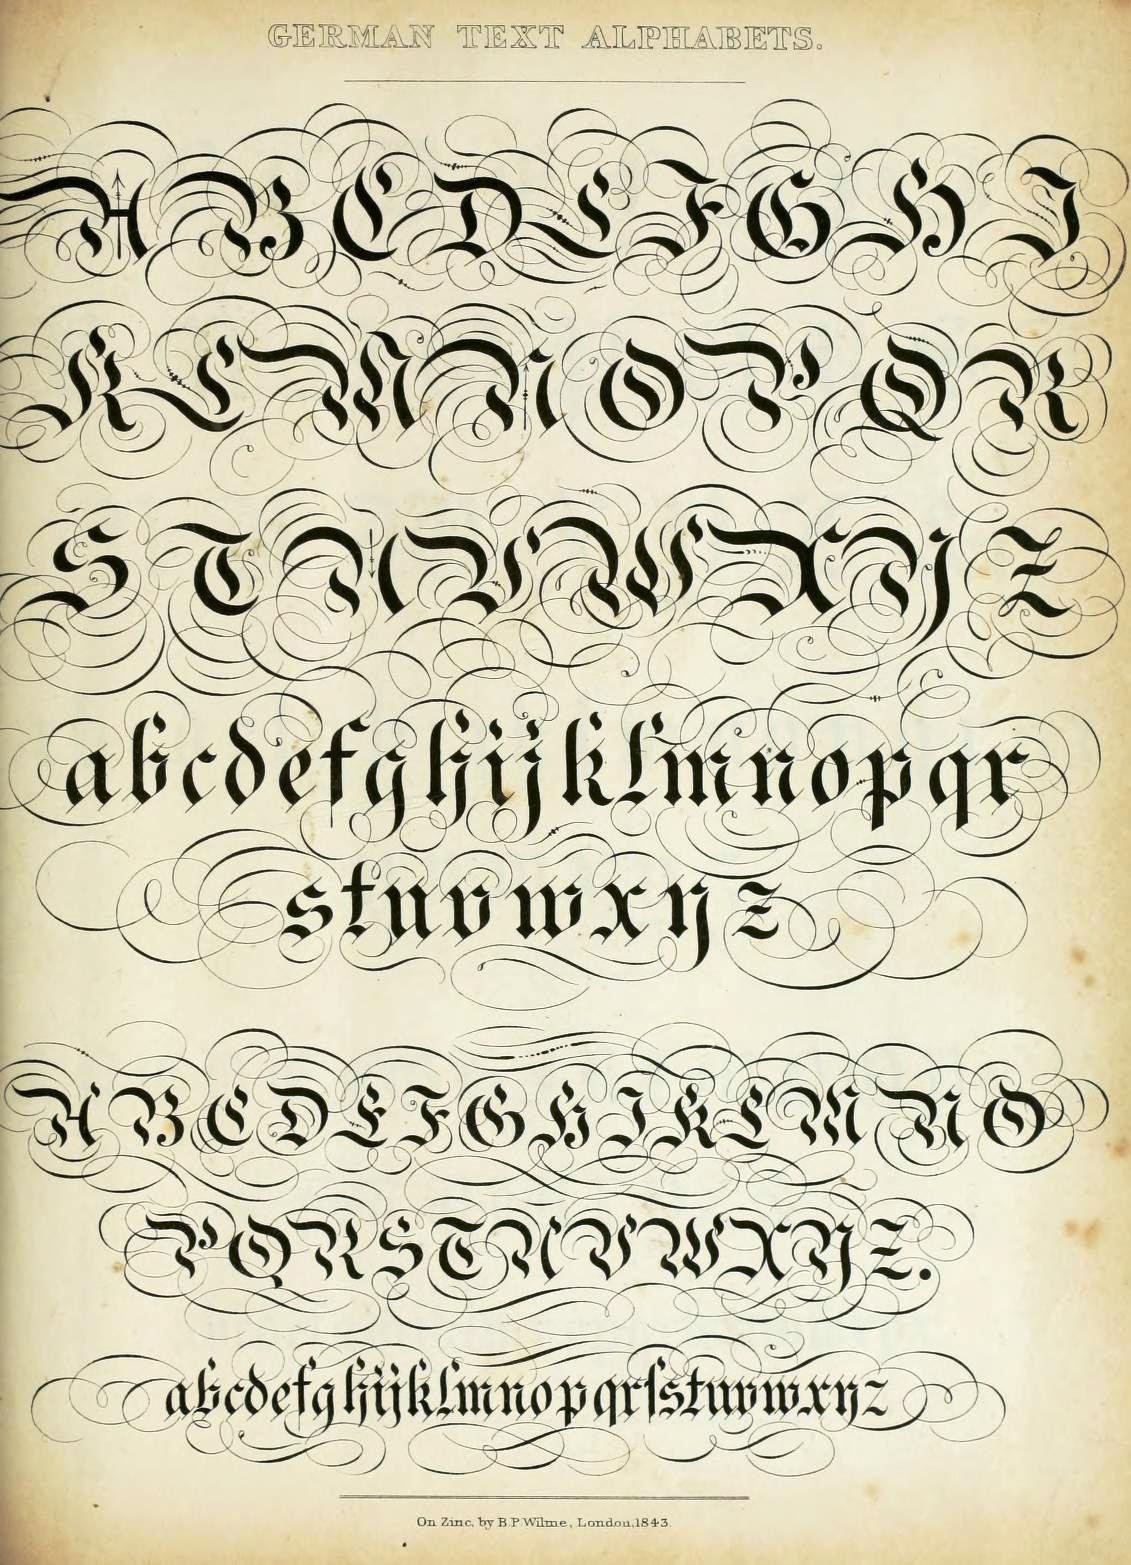 GERMAN TEXT ALPHABETS.
A B C D E F G H I
K L M N O P Q R
S T U V W X Y Z
a b c d e f g h i j k l m n o p q r
s t u v w x y z
A B C D E F G H I K L M N O
P Q R S T U V W X Y Z.
a b c d e f g h i j k l m n o p q r ſ s t u v w x y z
On Zinc, by B.P. Wilme, London, 1843.